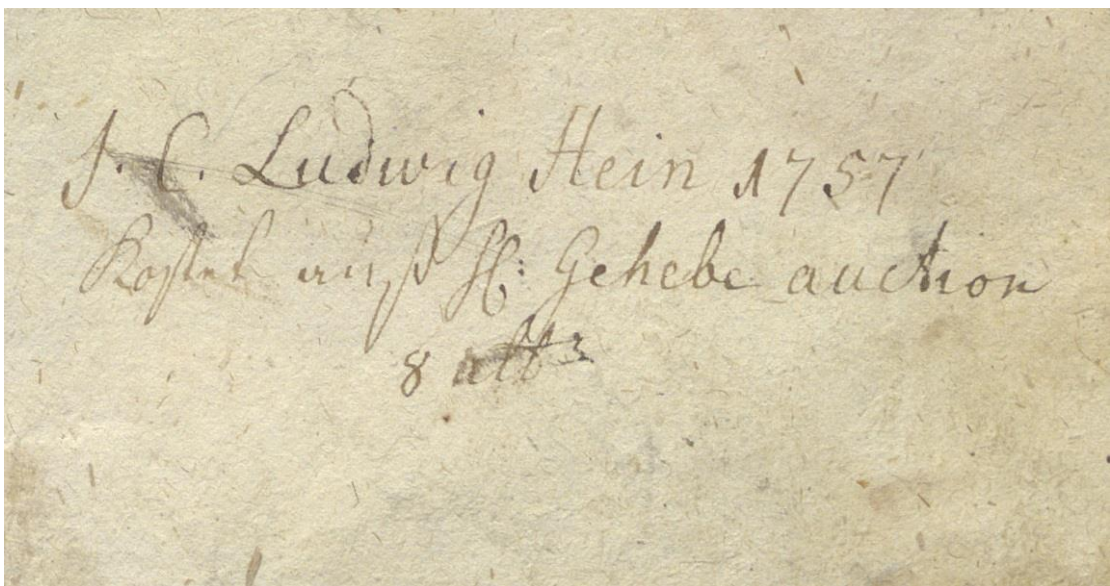 J. C. Ludwig Hein 1757
Kostet auß H: Gehebe auction
8 alb